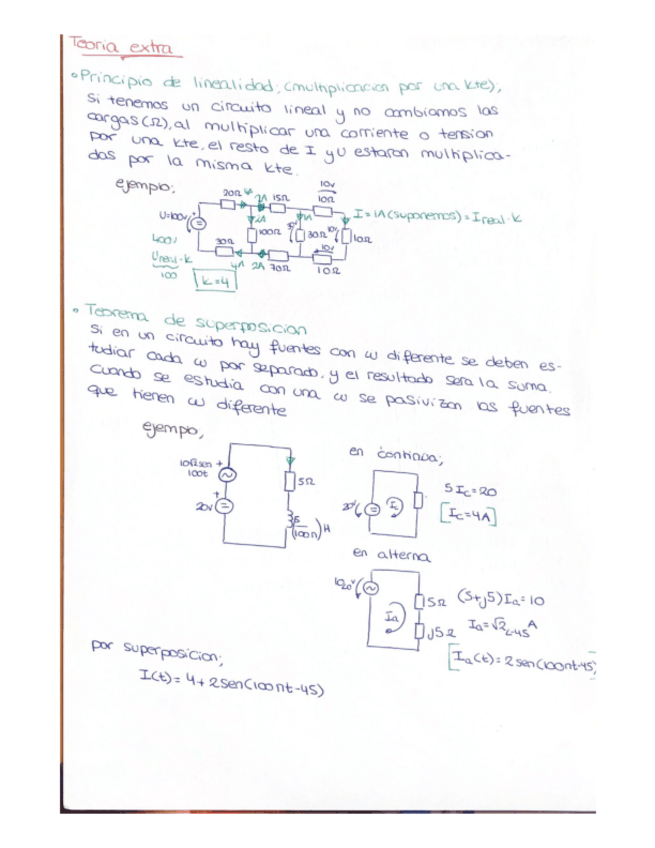 Teoria extra
• Principio de linealidad; (multiplicacion por una kte),
Si tenemos un circuito lineal y no cambiamos las
cargas (Ω), al multiplicar una corriente o tension
por una kte, el resto de I y U estaran multiplica-
das por la misma kte.
ejemplo;
20Ω 4A 2A 15Ω 10V 10Ω
U=100V 2A 100Ω 30Ω 1A 10V 10Ω
I = 1A (suponemos) = I real · k
400V
U real · k
100
30Ω 4A 2A 70Ω 10V 10Ω
k=4
• Teorema de superposicion
Si en un circuito hay fuentes con ω diferente se deben es-
tudiar cada ω por separado, y el resultado sera la suma.
Cuando se estudia con una ω se pasivizan las fuentes
que tienen ω diferente
ejemplo,
10√2 sen 100t
+
5Ω
+
20V
5/(100π) H
en continua;
20V Ic
5 Ic = 20
[Ic = 4A]
en alterna
10∠0° V Ia
5Ω
j5Ω
(5+j5) Ia = 10
Ia = √2∠-45 A
[Ia(t) = 2 sen(100πt-45)
por superposicion;
I(t) = 4 + 2 sen(100πt-45)